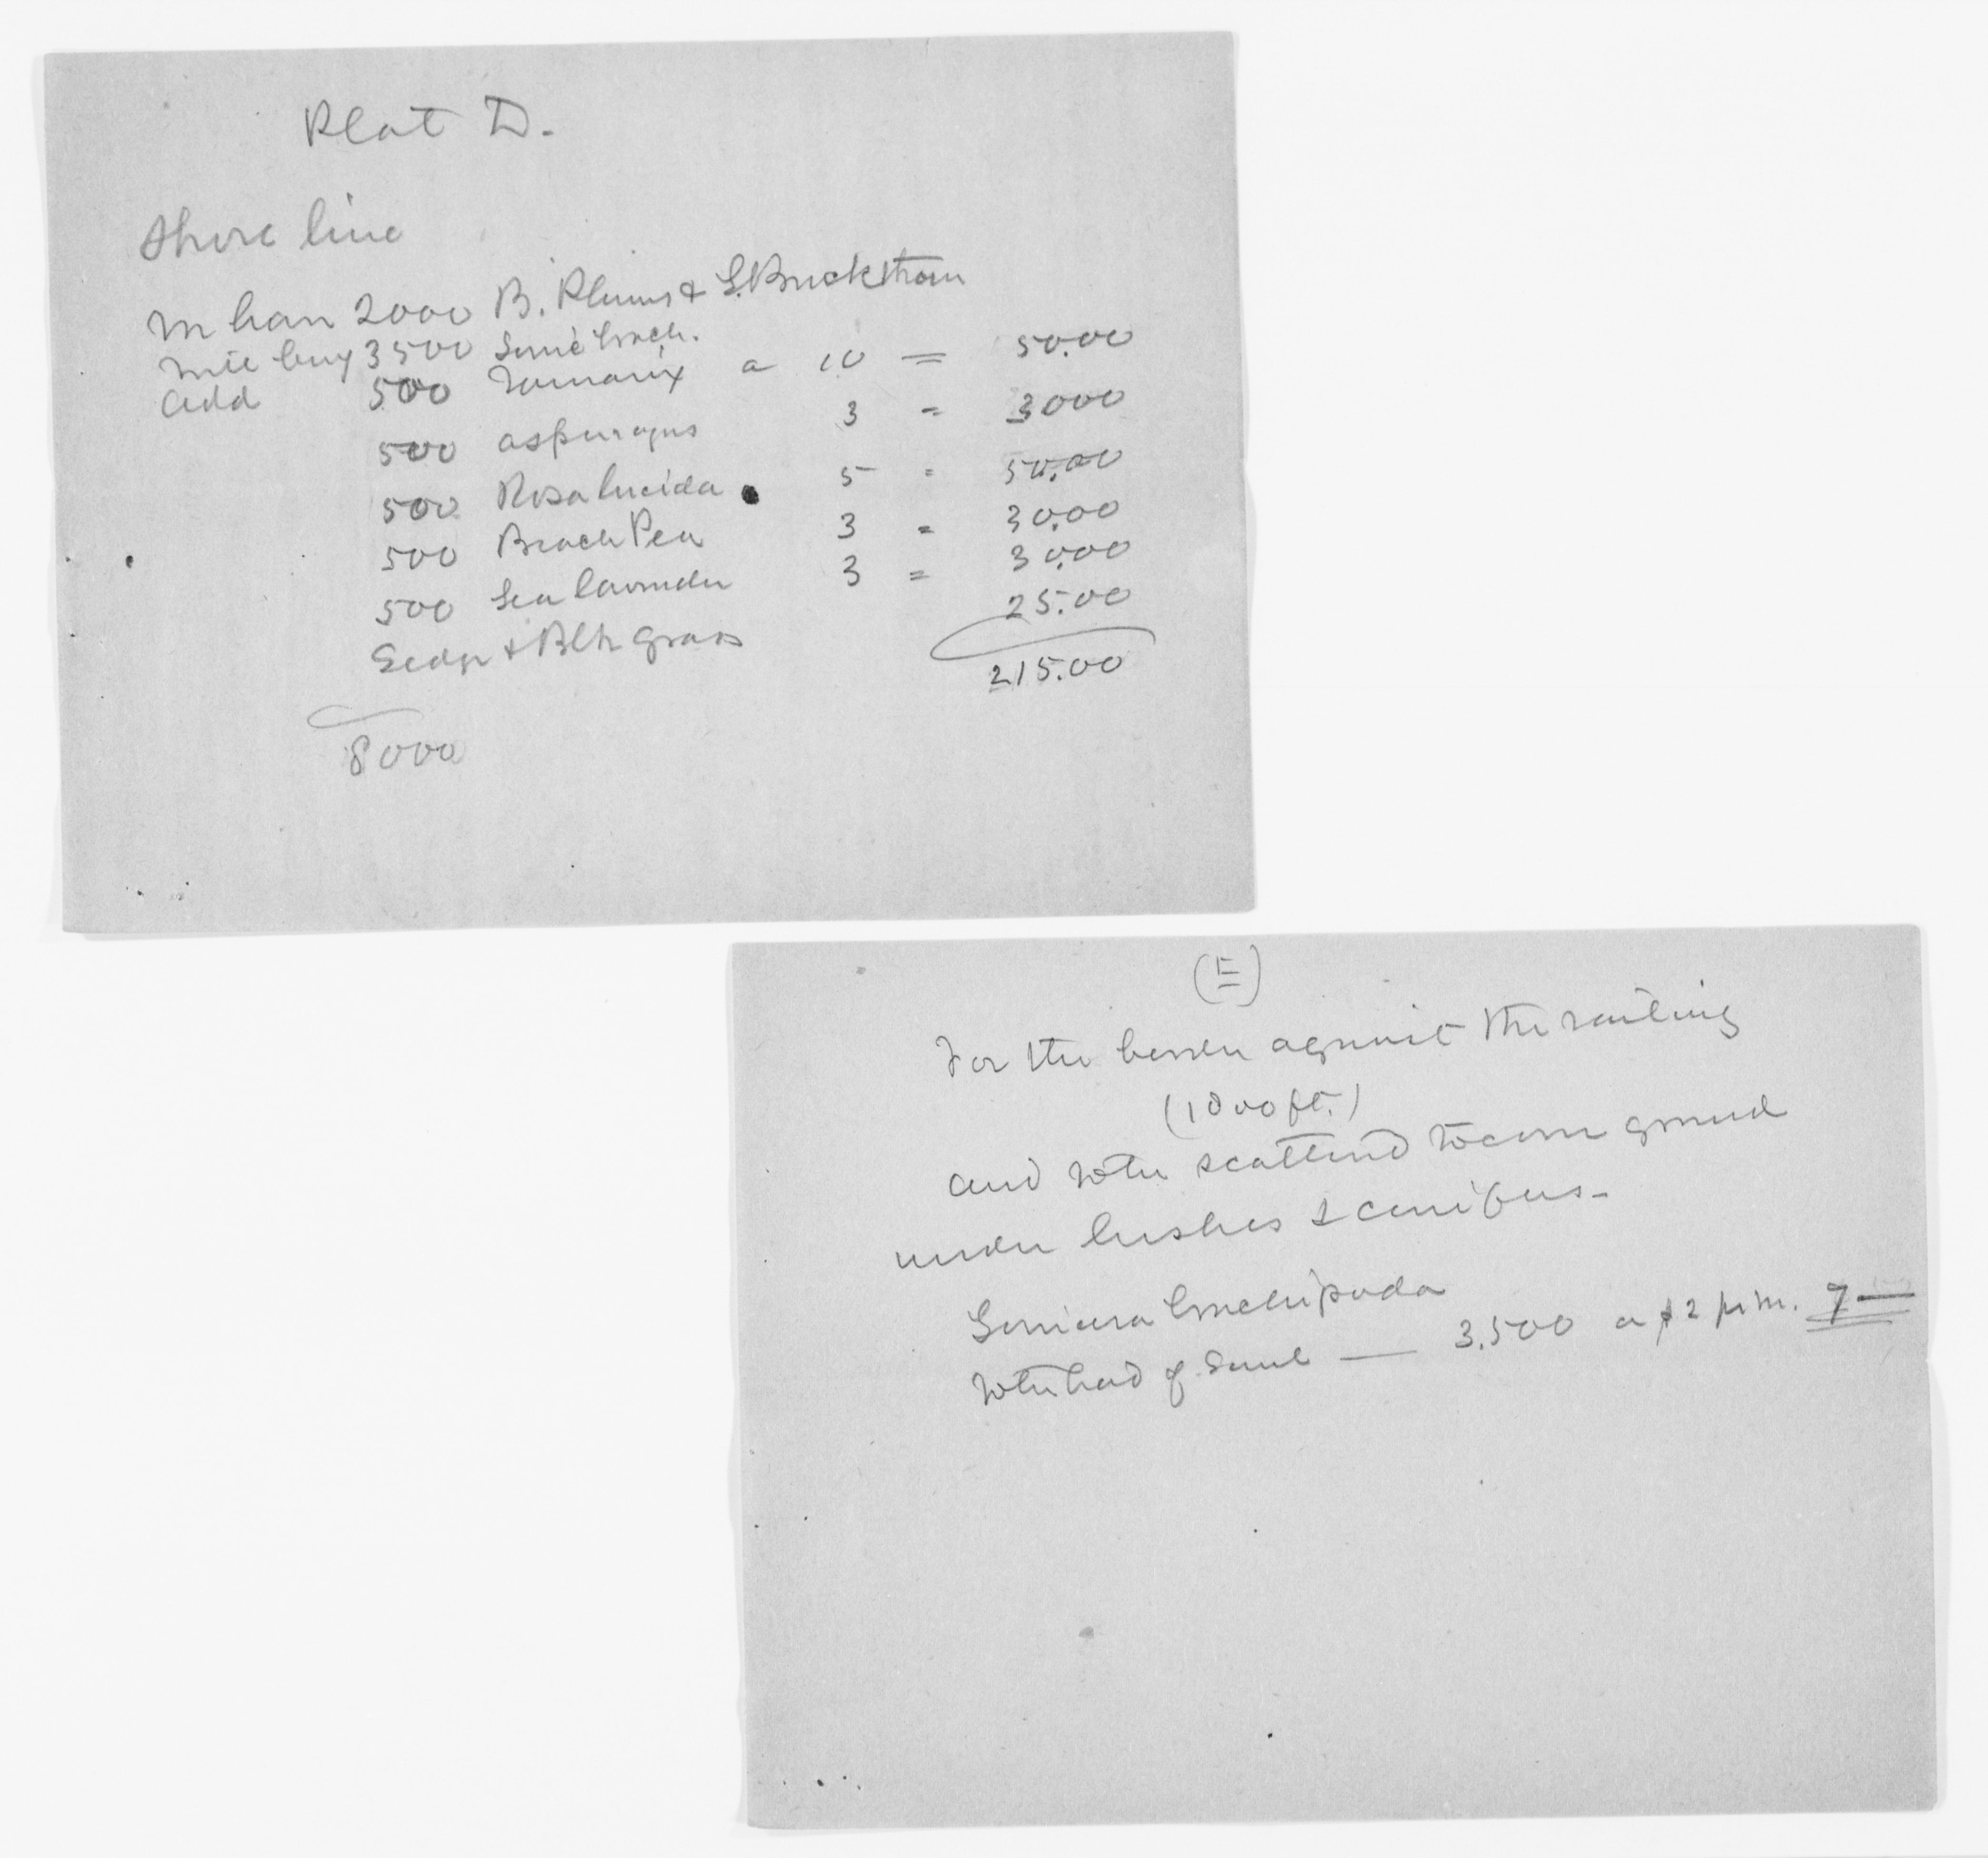 Plat D.
Shore line
have 2000 B. Plums & S. Buckthorn
buy 3500 Lonic brach.
add 500 Tamarix a 10 = 50.00
500 asparagus 3 = 3000
500 Rosa lucida 5 = 50.00
500 Beach Pea 3 = 30.00
500 Sea lavender 3 = 30.00
Sedge & Bch grass 25.00
215.00
8000
(E)
For the border against the railing
(1000 ft.)
and to be scattered to cover ground
under bushes & conifers -
Lonicera brachypoda
to be had of Saul — 3,500 a $2 per m. 7—